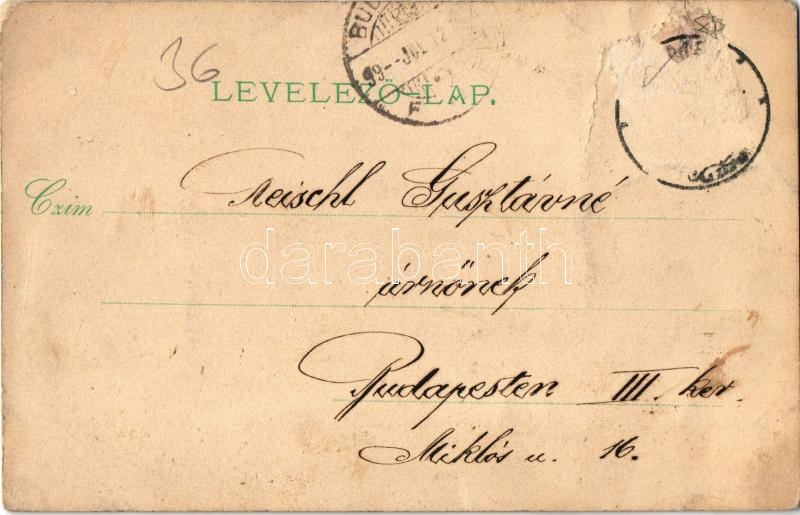 36
LEVELEZŐ-LAP.
Czim
Reischl Gusztávné
úrnőnek
Budapesten III. ker.
Miklós u. 16.
darabanth